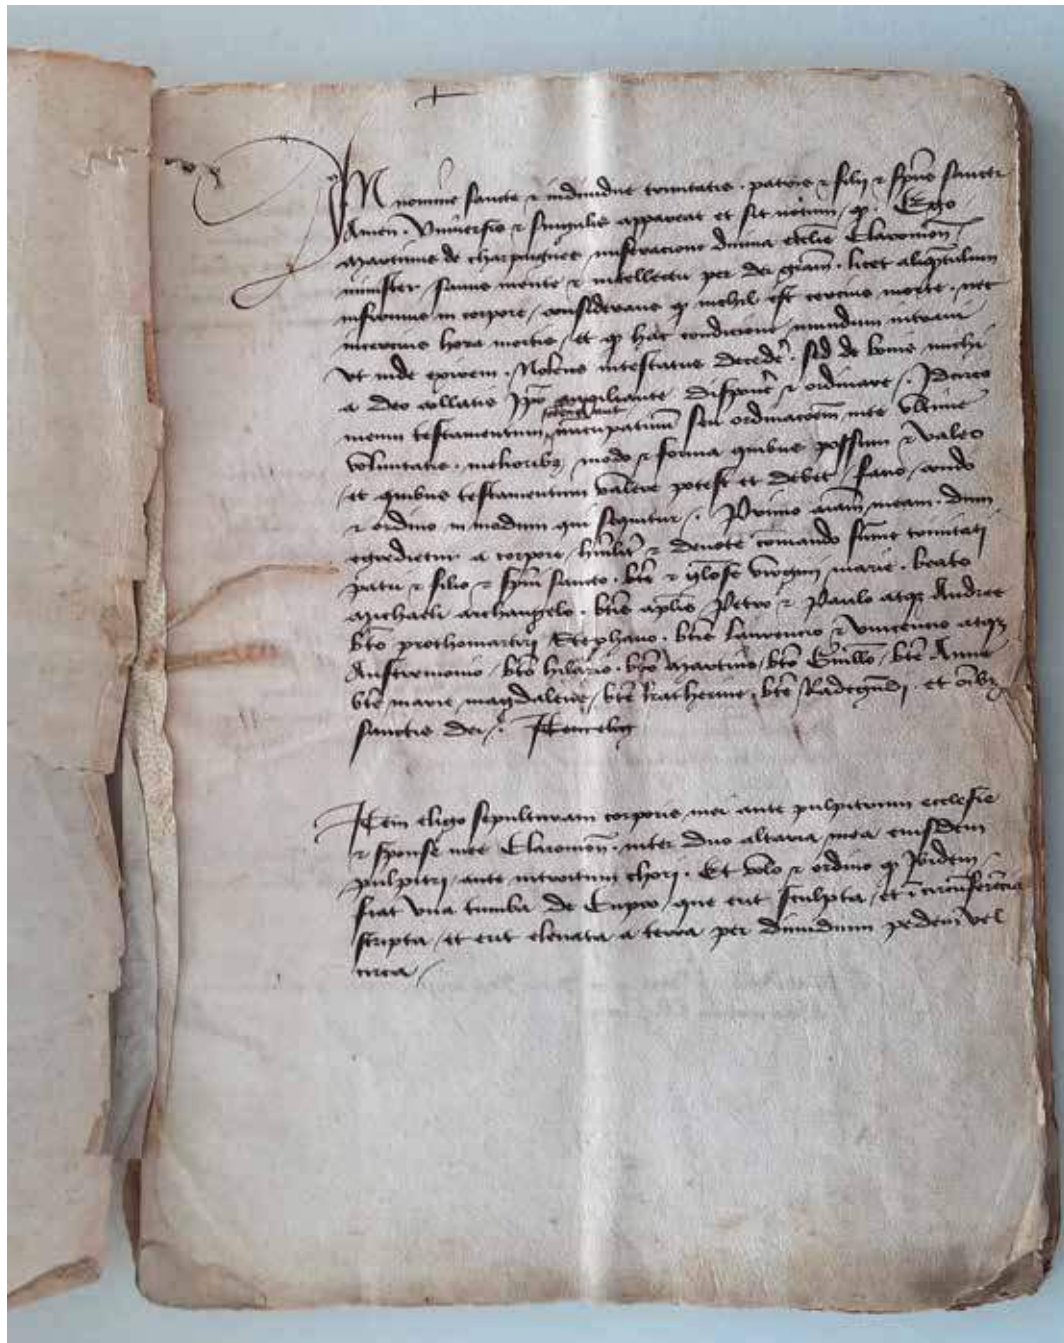 In nomine sancte et individue trinitatis. patris et filii et sp̄us sancti
Amen. Universis et singulis appareat et sit notum, qͥ. Ego
Martinus de charpaignes miseracione divina ecclīe Claromon̄
minister sanus mente et intellectu per dei grām. licet aliqͣtulum
infirmus in corpore, considerans qͥ nichil est cercius morte. nec
incercius hora mortis, et qͥ hac condicione mundum intravi
ut inde exirem. Nolens intestatus decedēr. sed de bonis michi
a deo collatis ipō auxiliante disponēr et ordinare. Idcirco
meum testamentum nuncupativum seu ordinacōem mee ultime
voluntatis. melioribꝫ modo et forma quibus possum et valeo
et quibus testamentum valere potest et debet, facio, condo
et ordino in modum qui sequitur. Primo aīam meam. dum
egredietur a corpore hūilitēr et devote comando sūme trinitati
patri et filio et spūi sancto. btē et glōse virgini marie. beato
Michaeli archangelo. btīs aplīs Petro et Paulo atqꝫ Andree
btō prothomartiri Stephano. btīs laurencio et vincencio atqꝫ
Austremonio, btō hilario. btō Martino, btō Guillō, btē Anne
btē marie magdalene, btē katherine, btē Radegūdi. et oībꝫ
sanctis dei. Item elig
Item eligo sepulturam corporis mei ante pulpitrum ecclesie
et sponse mee Claromon̄. inter duo altaria mea eiusdem
pulpitri, ante introitum chori. Et volo et ordino qͥ ibidem
fiat una tumba de cupro, que erit sculpta, et ī circūferēcia
scripta, et erit elevata a terra per dimidium pedem vel
circa